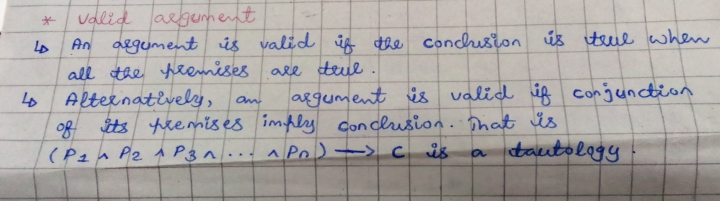 * Valid argument
↳ An argument is valid if the conclusion is true when
all the premises are true.
↳ Alternatively, an argument is valid if conjunction
of its premises imply conclusion. That is
(P1 ∧ P2 ∧ P3 ∧ ... ∧ Pn) → C is a tautology.